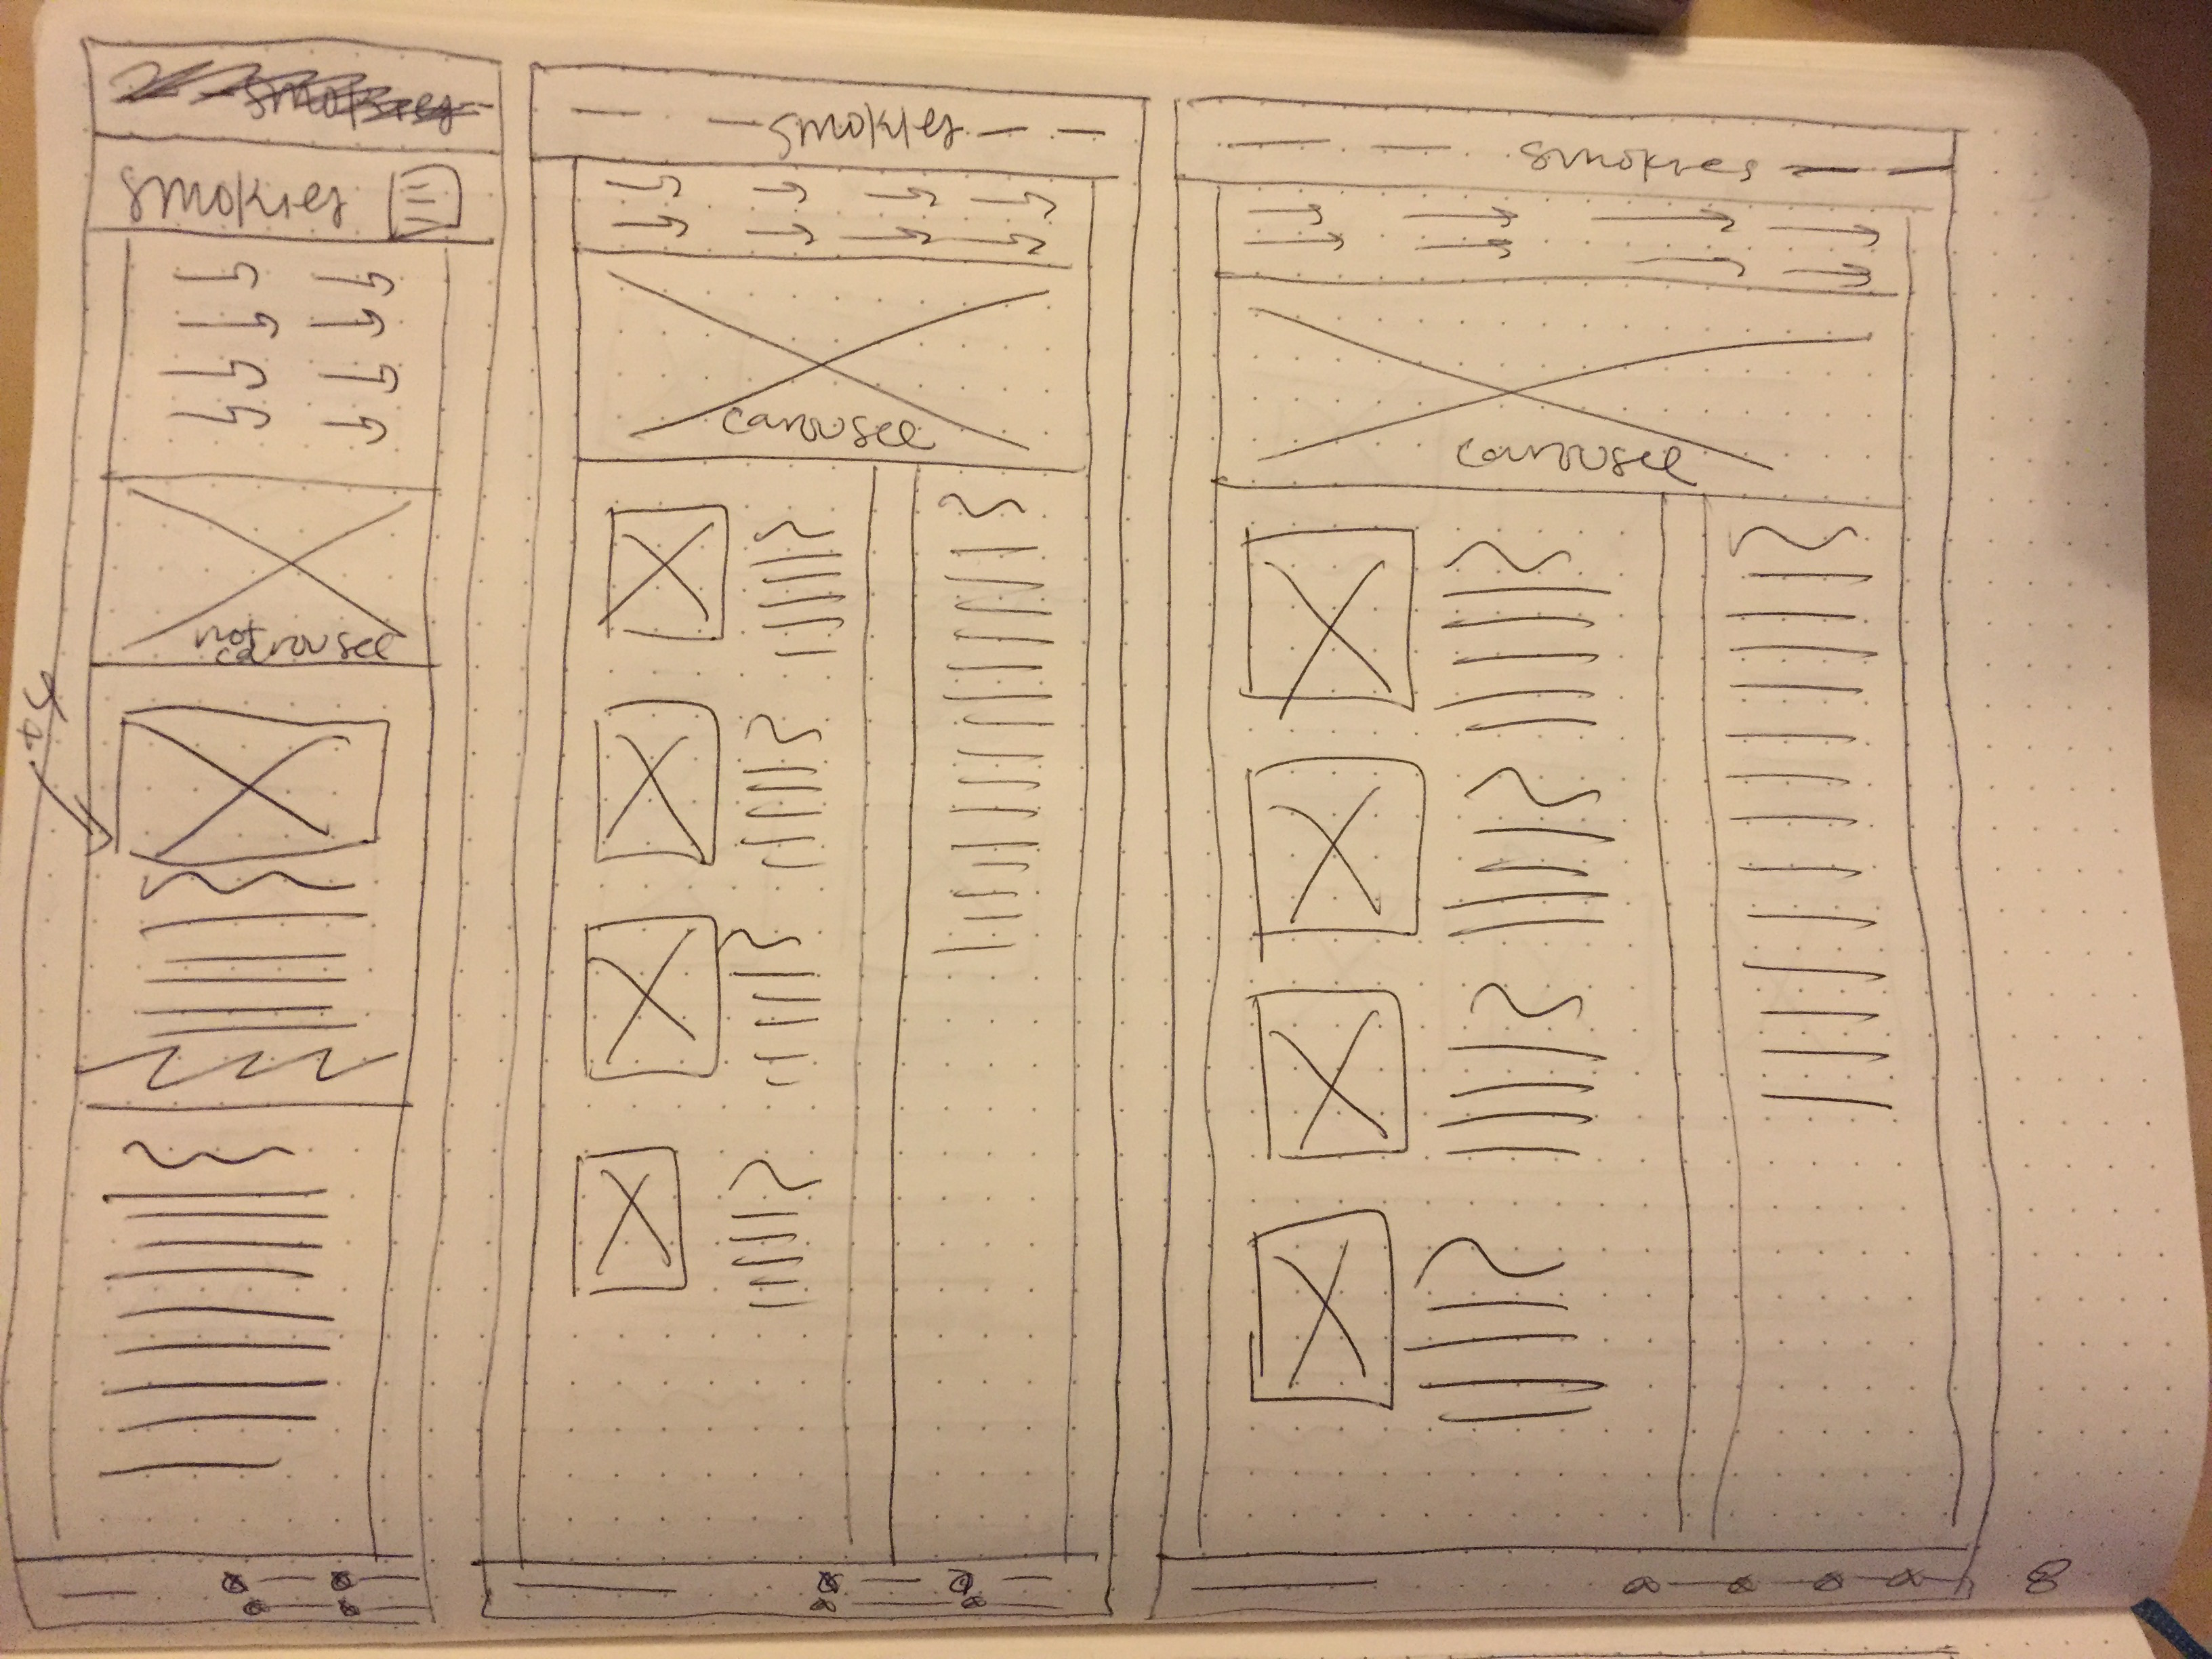 smokies
smokies
not
carousel
x4
smokies
carousel
smokies
carousel
8